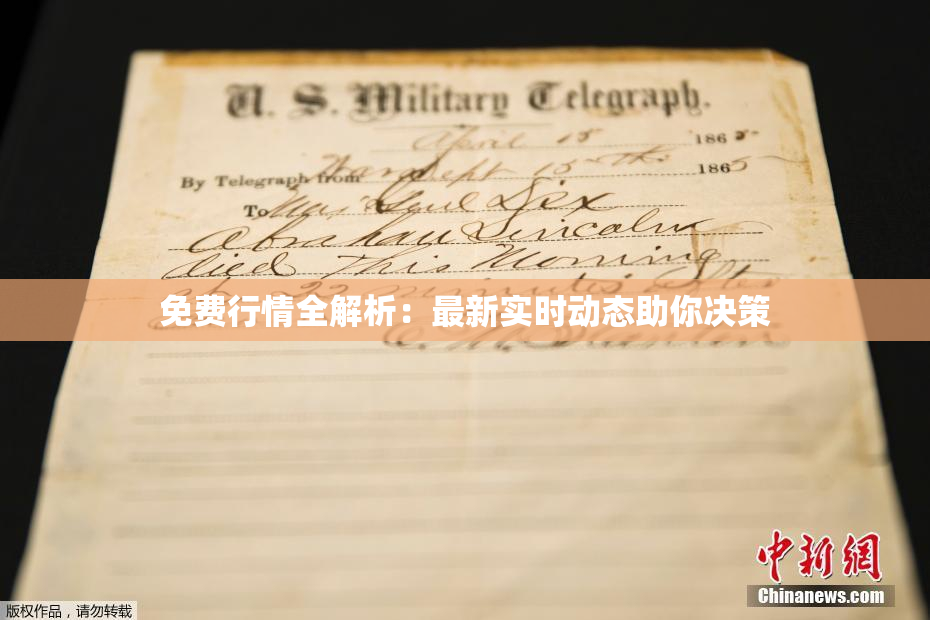 U. S. Military Telegraph.
April 15 1865
By Telegraph from War Dept 15th 1865
To Maj Genl Dix
Abraham Lincoln
died This Morning
at 22 minutes after
免费行情全解析：最新实时动态助你决策
中新網
版权作品，请勿转载
Chinanews.com